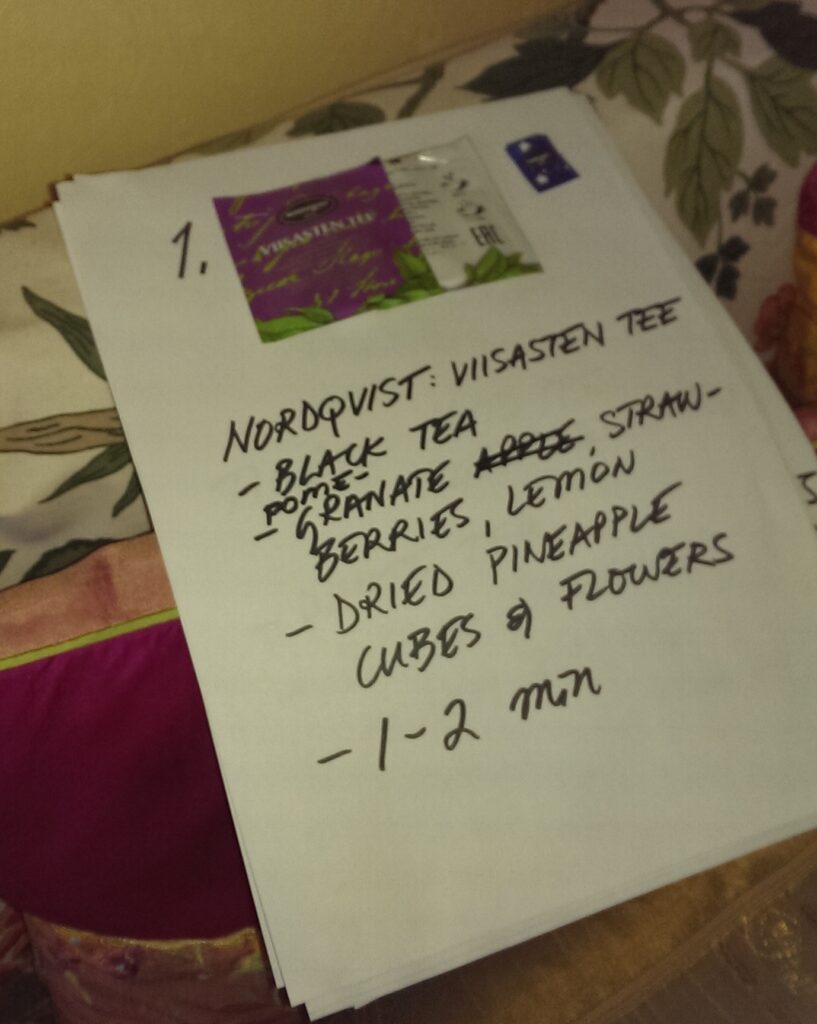 1.
VIISASTEN TEE
EAC
NORDQVIST: VIISASTEN TEE
- BLACK TEA
POME-
- GRANATE APPLE, STRAW-
BERRIES, LEMON
- DRIED PINEAPPLE
CUBES & FLOWERS
- 1-2 min